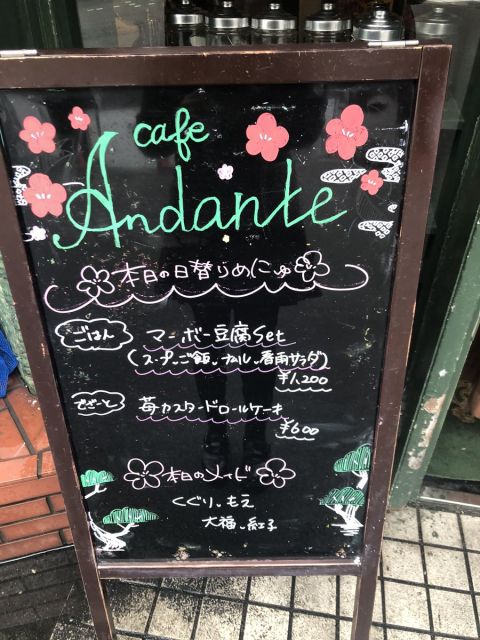 cafe
Andante
本日の日替りめにゅ
ごはん
マーボー豆腐set
(スープ、ご飯、ナムル、春雨サラダ)
¥1,200
でざーと
苺カスタードロールケーキ
¥600
本日のメイド
くぐり、もえ
大福、紅子